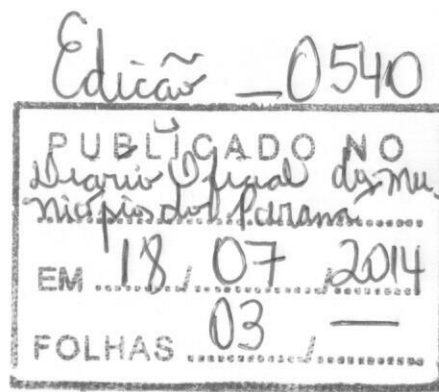 Edição - 0540
PUBLICADO NO
Diário Oficial dos Mu-
nicípios do Paraná
EM 18 / 07 / 2014
FOLHAS 03 / —